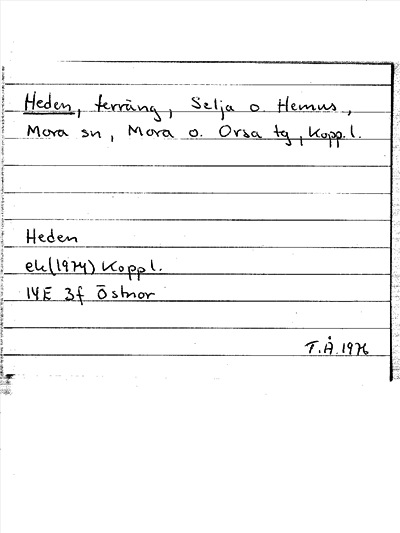 Heden, terräng, Selja o. Hemus,
Mora sn, Mora o. Orsa tg, Kopp. l.
Heden
ek (1974) Koppl.
14E 3f Östnor
T.Å. 1976